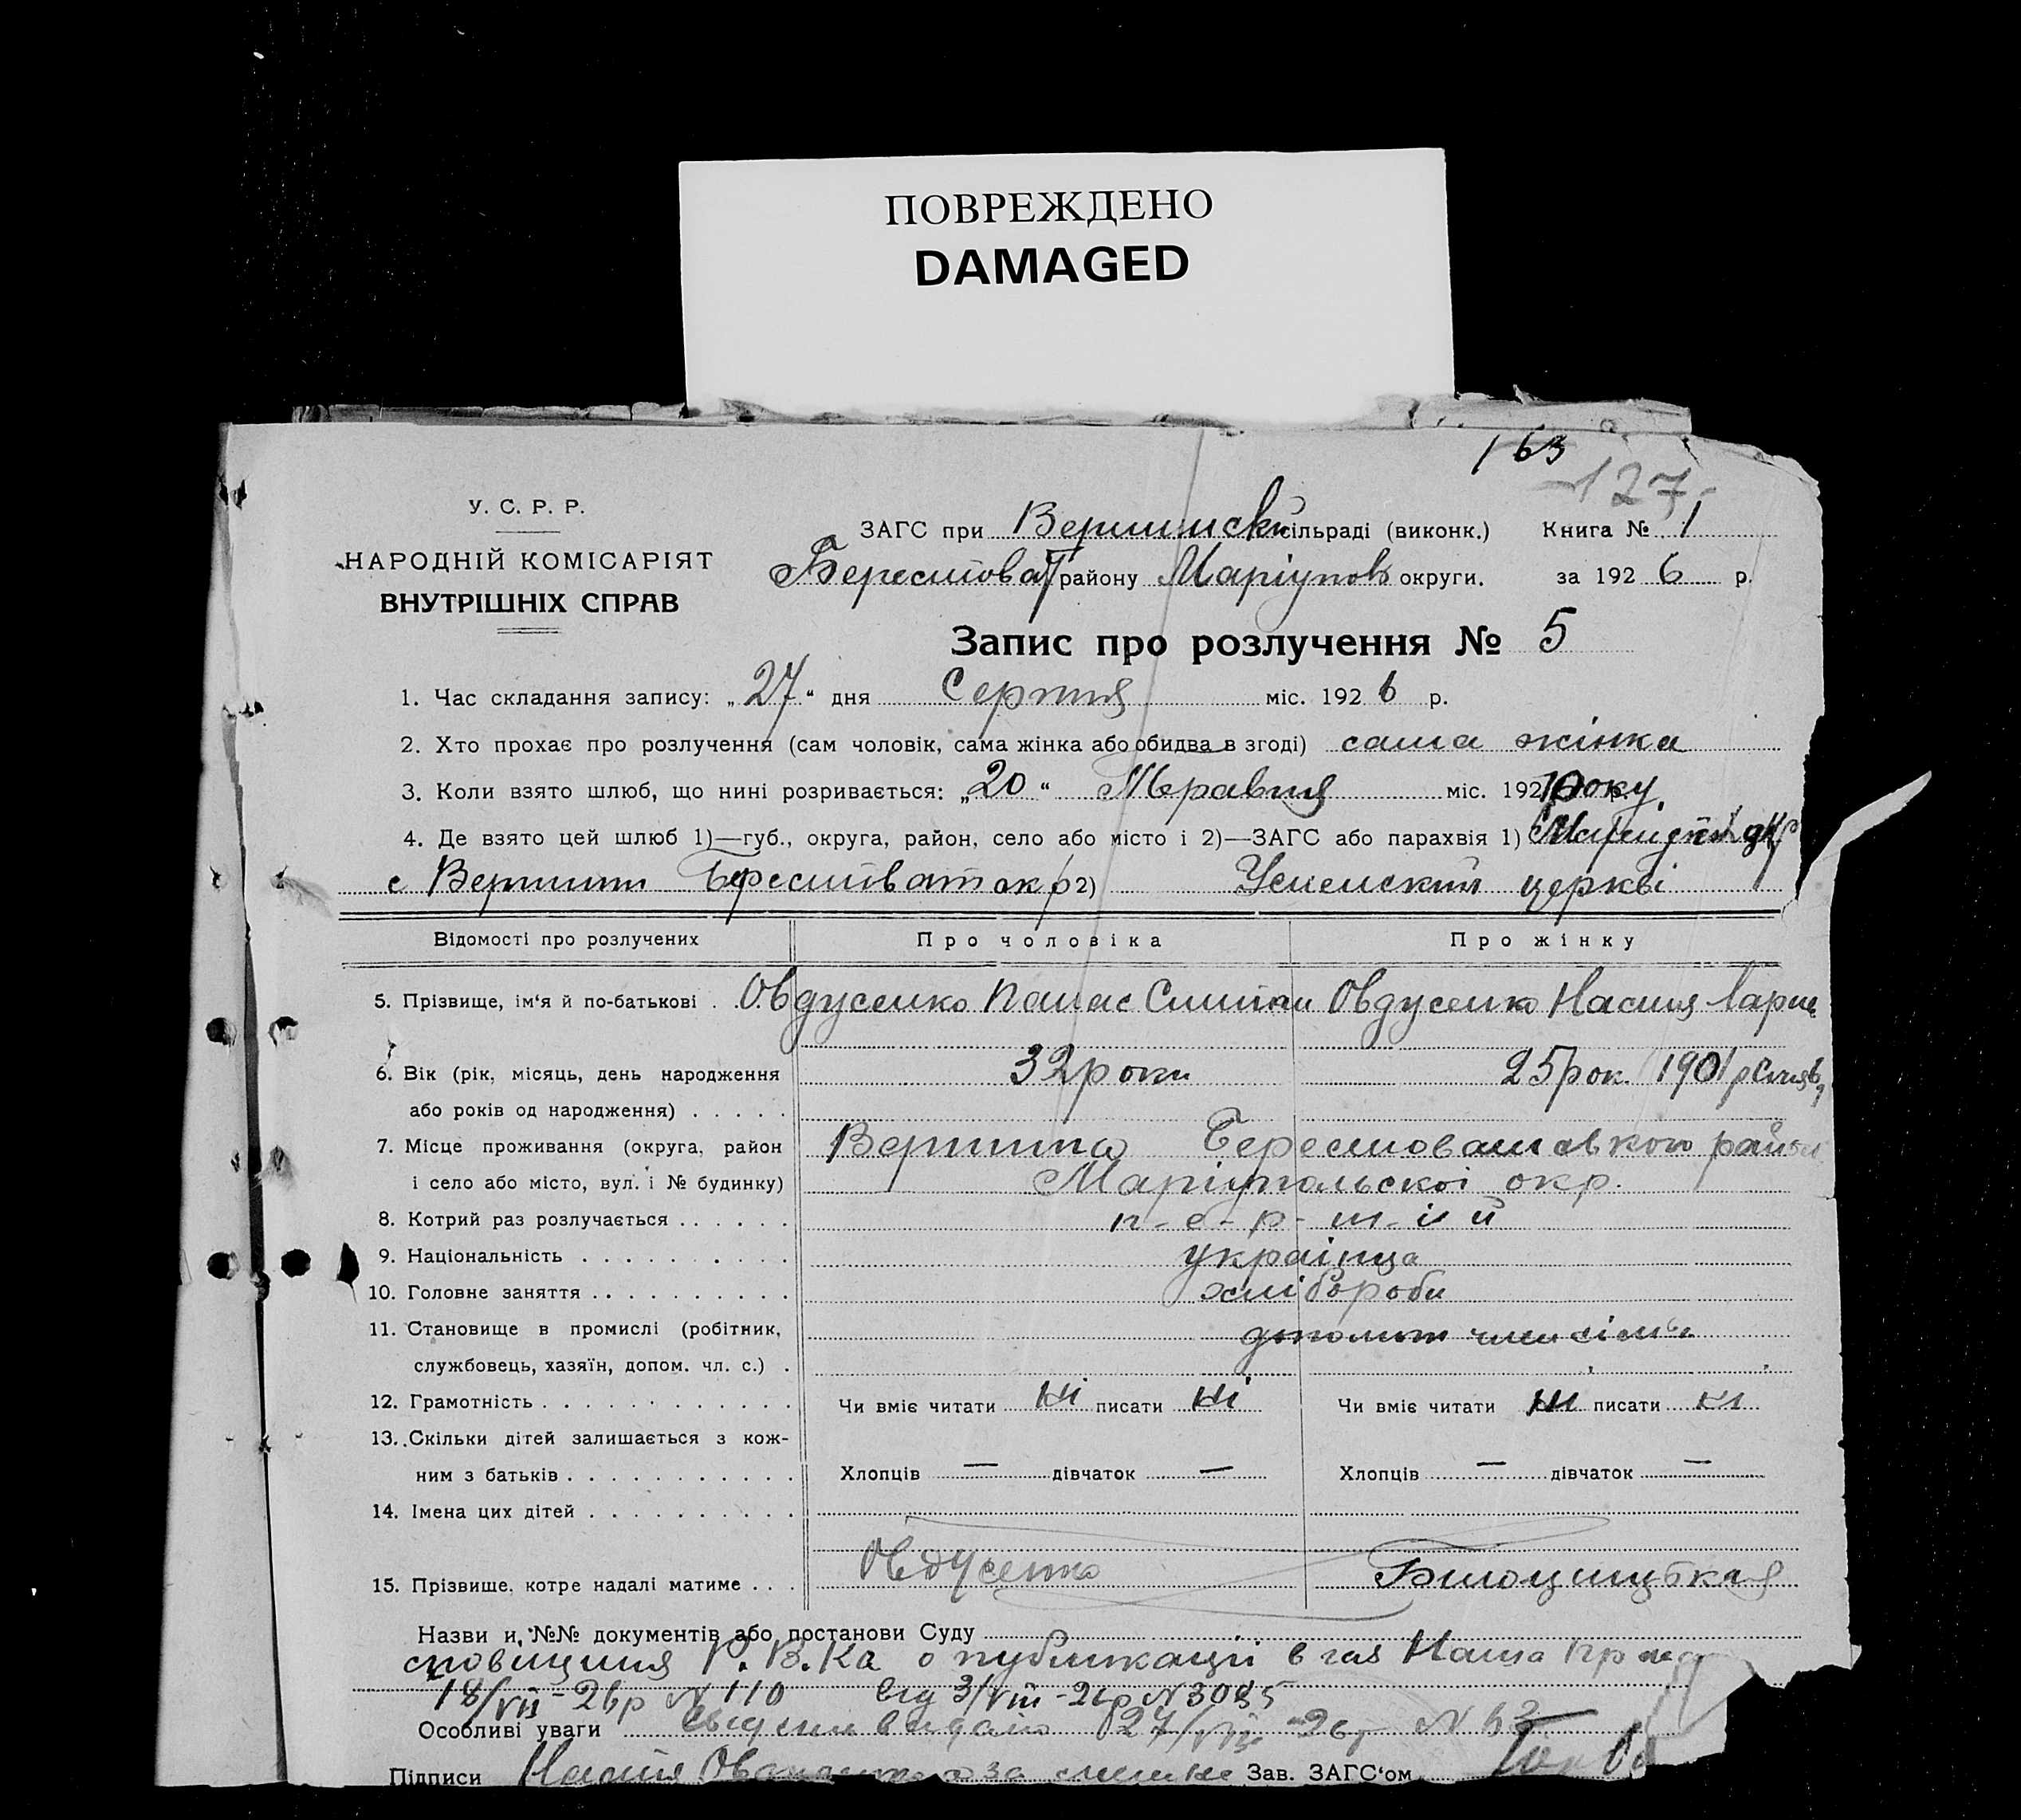 ПОВРЕЖДЕНО
DAMAGED
163
127
У. С. Р. Р.
НАРОДНІЙ КОМІСАРІЯТ
ВНУТРІШНІХ СПРАВ
ЗАГС при сільраді (виконк.) Книга № 1
району Маріупов округи. за 1926 р.
Запис про розлучення № 5
1. Час складання запису: „27“ дня Серпня міс. 1926 р.
2. Хто прохає про розлучення (сам чоловік, сама жінка або обидва в згоді) сама жінка
3. Коли взято шлюб, що нині розривається: „20“ міс. 192 року
4. Де взято цей шлюб 1)—губ., округа, район, село або місто і 2)—ЗАГС або парахвія 1)
с 2) церкві
Відомості про розлучених Про чоловіка Про жінку
5. Прізвище, ім‘я й по-батькові . . Овдусенко Панас Овдусенко Настя
6. Вік (рік, місяць, день народження 32 роки 25 рок. 1901 р
або років од народження) . . . . .
7. Місце проживання (округа, район Вершина
і село або місто, вул. і № будинку) Маріупольскоі окр.
8. Котрий раз розлучається . . . . . . п-е-р-ш-и й
9. Національність . . . . . . . . . . українца
10. Головне заняття . . . . . . . . . . хлібороби
11. Становище в промислі (робітник, член сімьи
службовець, хазяїн, допом. чл. с.) .
12. Грамотність . . . . . . . . . . . . Чи вміє читати ні писати ні Чи вміє читати ні писати ні
13. Скільки дітей залишається з кож-
ним з батьків . . . . . . . . . . . Хлопців — дівчаток — Хлопців — дівчаток —
14. Імена цих дітей . . . . . . . . . .
15. Прізвище, котре надалі матиме . . . Овдусенко
Назви и №№ документів або постанови Суду
Р. В. Ка о публикації в газ Наша Правда
18/VII-26р N 110 від 3/VIII-26р N
Особливі уваги видано 27/VIII-26р N
Підписи Настя Зав. ЗАГС‘ом